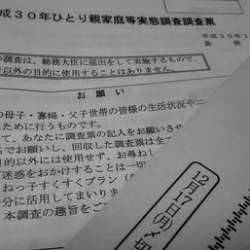 成３０年ひとり親家庭等実態調査調査票
平成３０年１
の調査は、総務大臣に届出をして実施するもので、
計以外の目的に使用することはありません。
お願い
の母子・寡婦・父子世帯の皆様の生活状況や
ために行うものです。
て、あなたに調査票の記入をお願いさせ
名でお願いし、回収した調査票は全
目的には使用せず、お尋ね
迷惑をおかけすることは一切
ねっ子すくすくプラン（
分に活用してまいりま
本調査の趣旨をご
１２月１７日（月）〆切